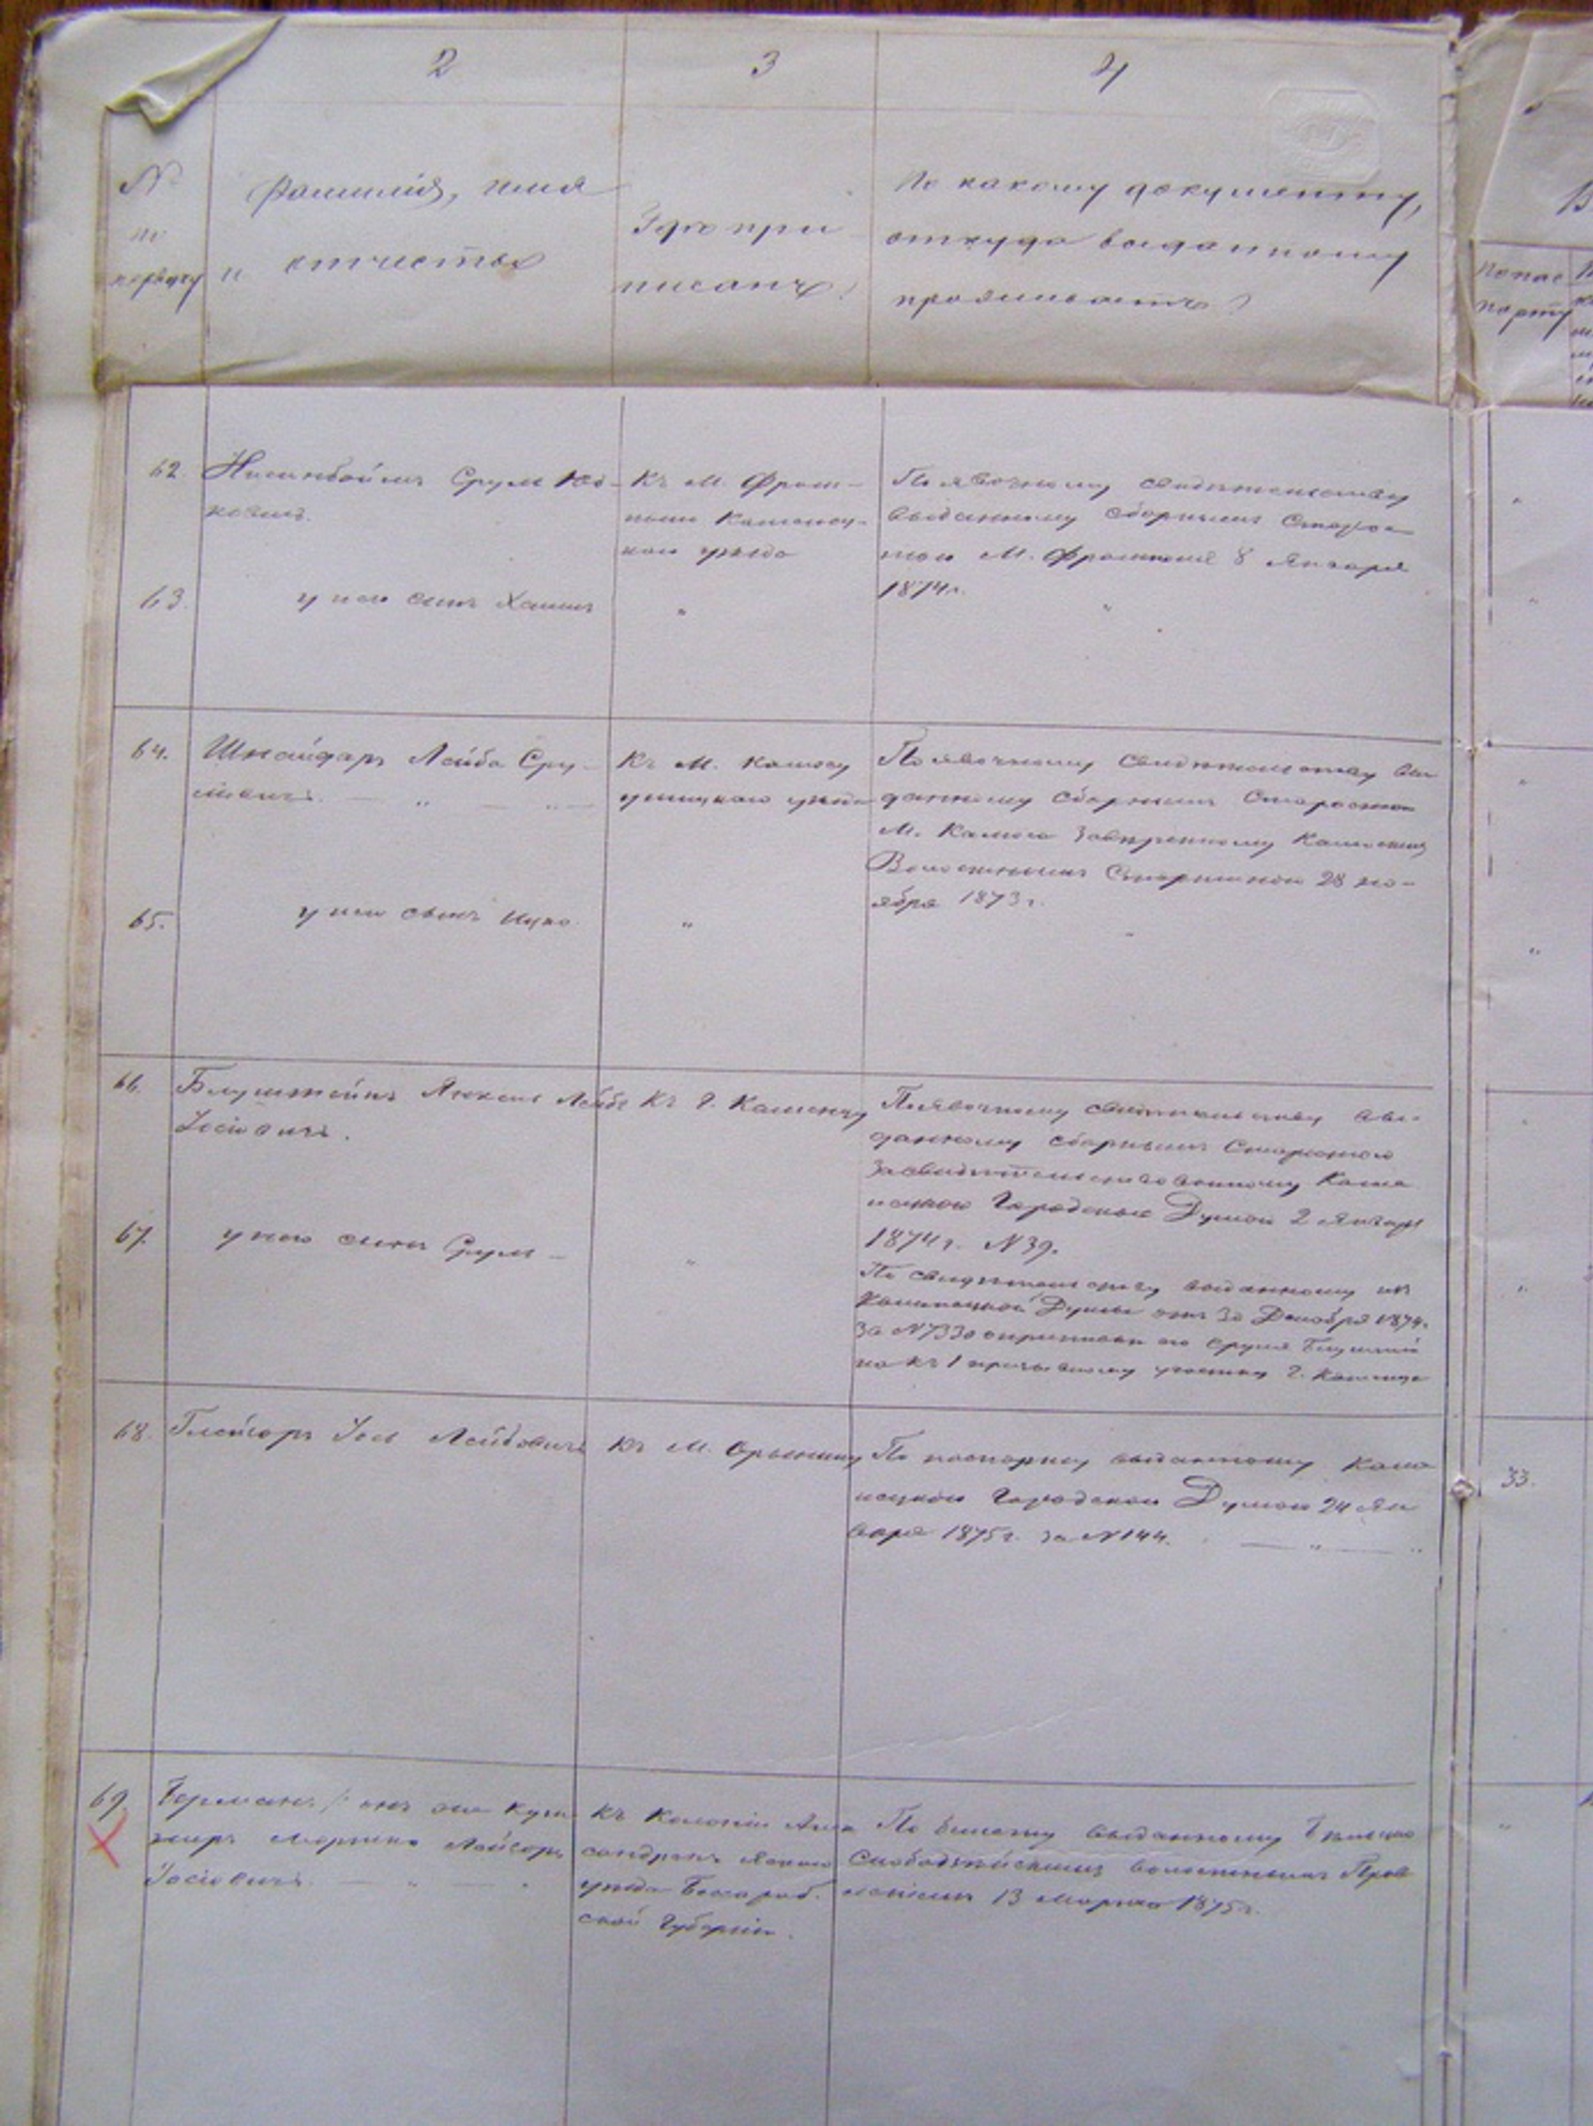 2
3
4
№
по
порядку
Фамилія, имя
и отчество
Гдѣ при
писанъ?
По какому документу,
откуда выданному
проживаетъ?
В
По пас
порту
62.
Нисинбоймъ Срул Іос-
ковичъ.
Къ М. Фрам-
полю Каменец-
каго уѣзда
По явочному свидѣтельству
выданному сборнымъ Старос-
тою М. Фрамполя 8 Января
1874 г.
63.
у него сынъ Хаимъ
"
"
64.
Шнайдеръ Лейба Сру-
левичъ. — " — " —
Къ М. Калюсу
Ушицкаго уѣзда
По явочному свидѣтельству вы
данному Сборнымъ Старостою
М. Калюса завѣренному Калюскимъ
Волостнымъ Старшиною 28 но-
ября 1873 г.
65.
у него сынъ Ицко.
"
"
66.
Блуштейнъ Янкель Лейба
Іосіовичъ.
Къ г. Каменцу
По явочному свидѣтельству вы-
данному сборнымъ Старостою
Засвидѣтельствованному Каме
нецкою Городскою Думою 2 Января
1874 г. № 39.
67.
у него сынъ Срул —
"
По свидѣтельству выданному изъ
Каменецкой Думы отъ 30 Декабря 1874.
за № 7330 Сруля Блуштей
на къ 1 призывному участку г. Каменца
68.
Глейзеръ Іос Лейбовичъ
Къ М. Орынину
По паспорту выданному Каме
нецкою Городскою Думою 24 Ян
варя 1875 г. за № 144. — " — "
33.
69.
Берманъ /: онъ же Куш
ниръ Мортко Лейзеръ
Іосіовичъ. — " — "
Къ Колоніи Алек
сандренъ Яскаго
уѣзда Бессараб.
ской Губерніи.
По билету выданному
Слободзейскимъ волостнымъ Прав
леніемъ 13 Марта 1875 г.